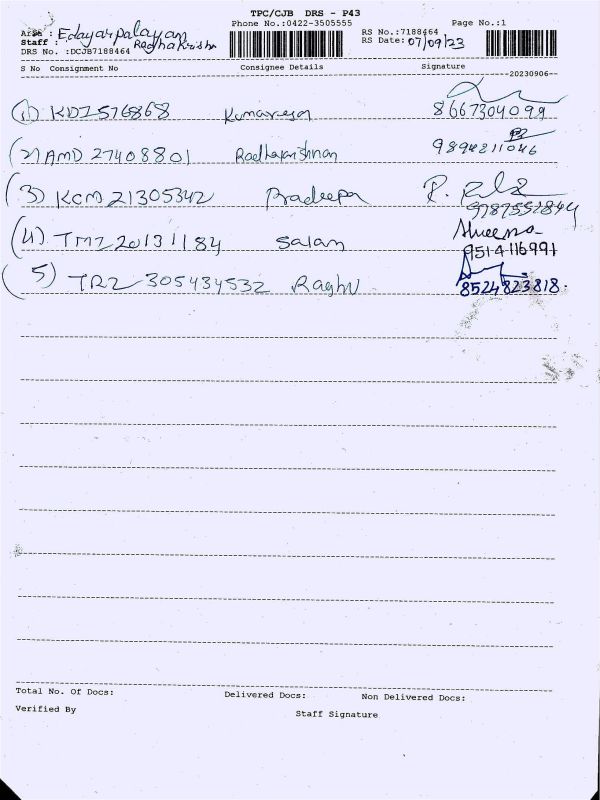 TPC/CJB DRS - P43
Phone No.:0422-3505555 Page No.:1
Area : Edayarpalayam RS No.:7188464
Staff : Radhakrishn RS Date: 07/09/23
DRS No. :DCJB7188464
S No Consignment No Consignee Details Signature
--20230906--
(1) KDI576868 Kumaresan 8667304099
(2) AMD 27408801 Radhakrishnan 9894211046
(3) KCM 21305342 Pradeepa P.
9787551844
(4) TMZ 20131184 Salam
9514116991
(5) TRZ 305434532 Raghu
8524823818.
Total No. Of Docs: Delivered Docs: Non Delivered Docs:
Verified By Staff Signature